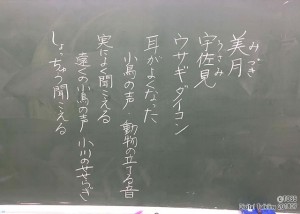 美月
みづき
宇佐見
うさみ
ウサギダイコン
耳がよくなった
小鳥の声・動物の立てる音
実によく聞こえる
遠くの小鳥の声 小川のせせらぎ
しょっちゅう聞こえる